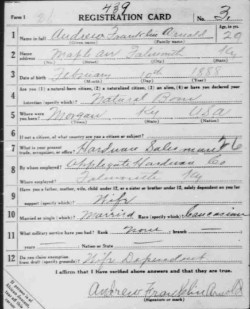 Form 1
439
REGISTRATION CARD
No. 3
Age, in yrs.
1 Name in full Andrew Franklin Arnold 29
(Given name) (Family name)
2 Home address Maple Ave Falmouth Ky
(No.) (Street) (City) (State)
3 Date of birth February 1888
(Month) (Day) (Year)
4 Are you (1) a natural-born citizen, (2) a naturalized citizen, (3) an alien, (4) or have you declared your intention (specify which)? Natural Born
5 Where were you born? Morgan Ky USA
(Town) (State) (Nation)
6 If not a citizen, of what country are you a citizen or subject?
7 What is your present trade, occupation, or office? Hardware Salesman 6
8 By whom employed? Applegate Hardware Co
Where employed? Falmouth Ky
9 Have you a father, mother, wife, child under 12, or a sister or brother under 12, solely dependent on you for support (specify which)? Wife
10 Married or single (which)? Married Race (specify which)? Caucasian
11 What military service have you had? Rank none ; branch
years Nation or State
12 Do you claim exemption from draft (specify grounds)? Wife Dependent
I affirm that I have verified above answers and that they are true.
Andrew Franklin Arnold
(Signature or mark)